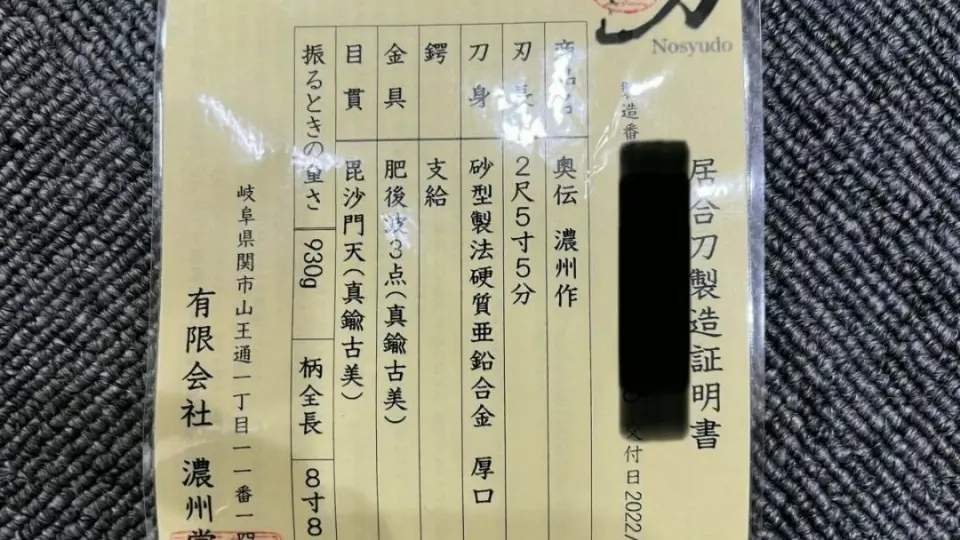 刀
Nosyudo
居合刀製造証明書
製造番
交付日 2022/
商品名 奥伝 濃州作
刃長 2尺5寸5分
刀身 砂型製法硬質亜鉛合金 厚口
鍔 支給
金具 肥後波3点(真鍮古美)
目貫 毘沙門天(真鍮古美)
振るときの重さ 930g 柄全長 8寸8
岐阜県関市山王通一丁目一一番一
有限会社 濃州堂